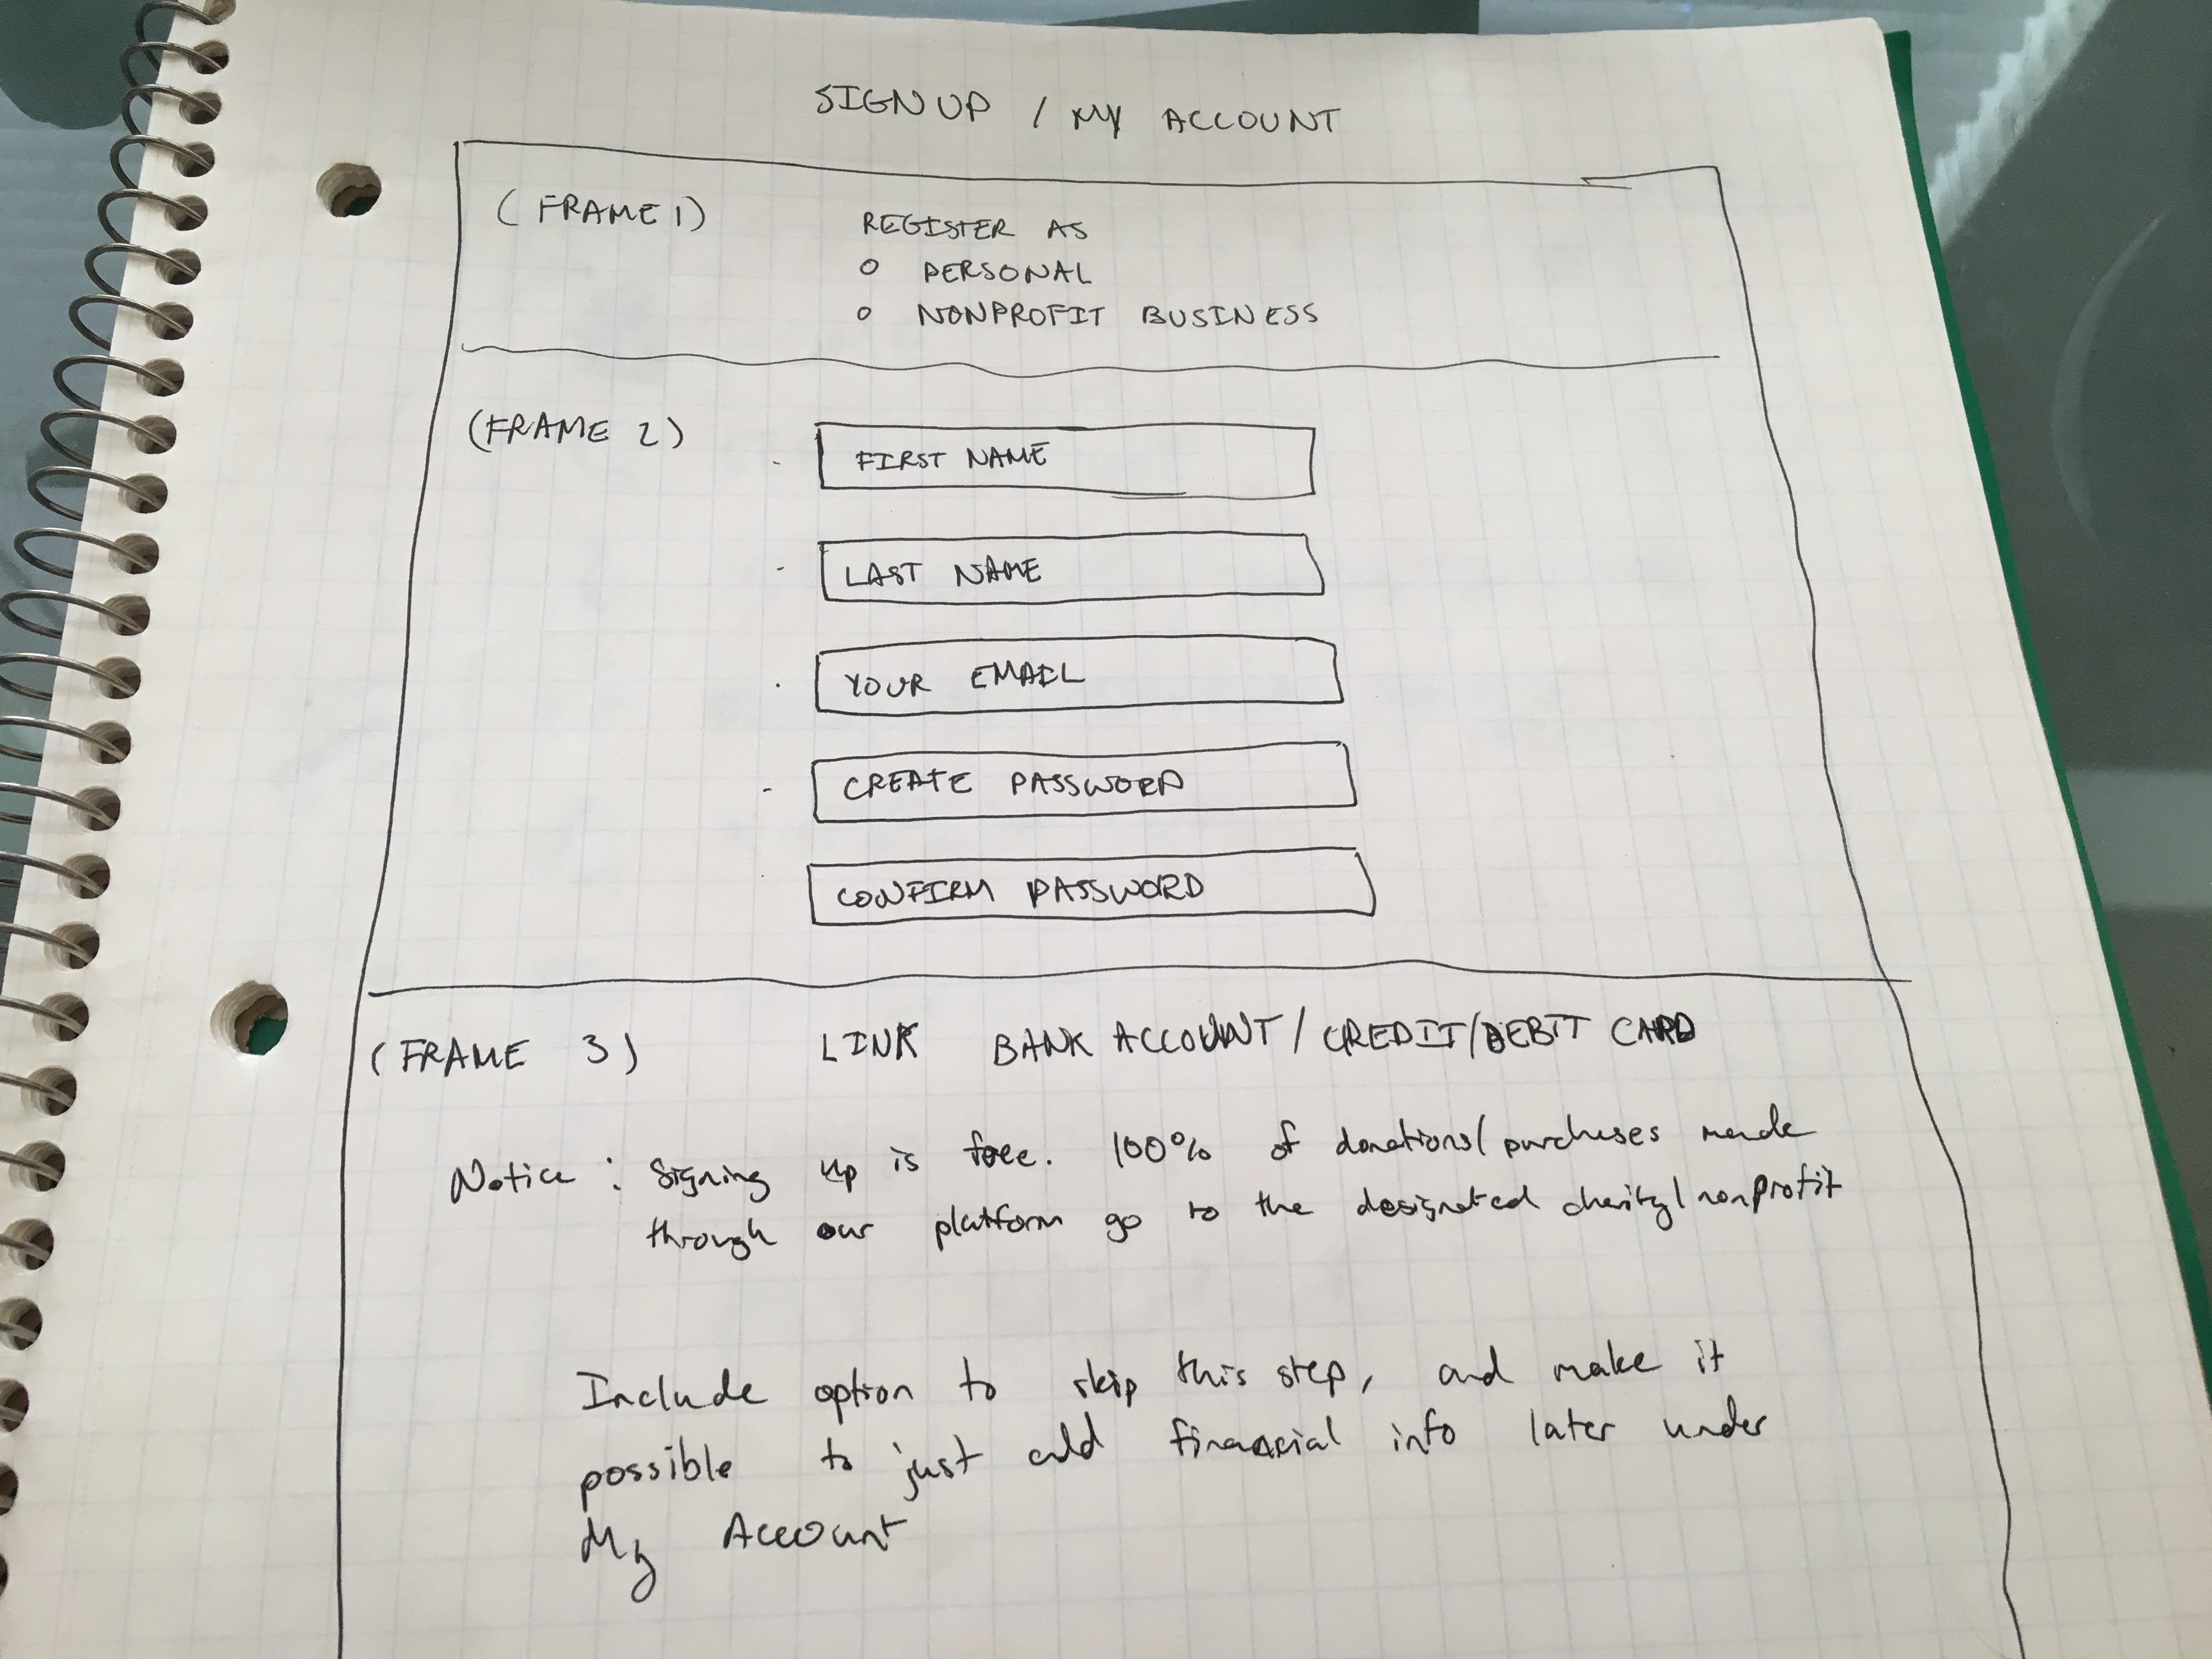 SIGN UP / MY ACCOUNT
(FRAME 1)
REGISTER AS
○ PERSONAL
○ NONPROFIT BUSINESS
(FRAME 2)
FIRST NAME
LAST NAME
YOUR EMAIL
CREATE PASSWORD
CONFIRM PASSWORD
(FRAME 3) LINK BANK ACCOUNT/CREDIT/DEBIT CARD
Notice: Signing up is free. 100% of donations/purchases made
through our platform go to the designated charity/nonprofit
Include option to skip this step, and make it
possible to just add financial info later under
My Account